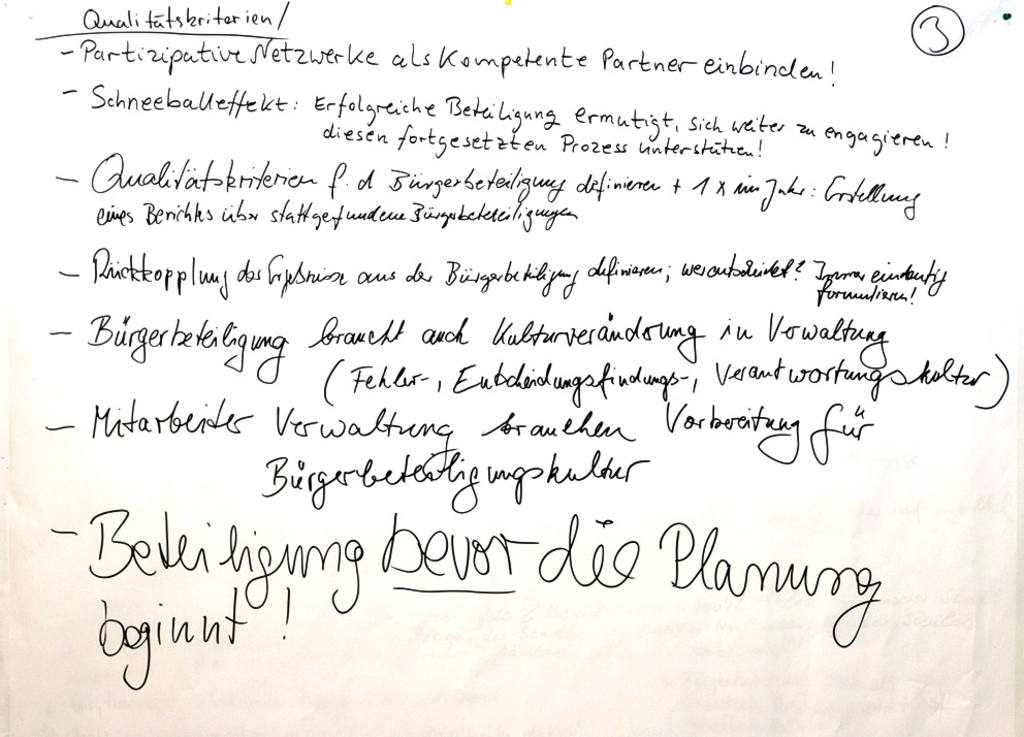 Qualitätskriterien/
3
- Partizipative Netzwerke als Kompetente Partner einbinden!
- Schneeballeffekt: Erfolgreiche Beteiligung ermutigt, sich weiter zu engagieren!
diesen fortgesetzten Prozess unterstützen!
- Qualitätskriterien f. d Bürgerbeteiligung definieren + 1 x im Jahr: Erstellung
eines Berichts über stattgefundene Bürgerbeteiligungen
- Rückkopplung der Ergebnisse aus der Bürgerbeteiligung definieren; wer entscheidet? Immer eindeutig
formulieren!
- Bürgerbeteiligung braucht auch Kulturveränderung in Verwaltung
(Fehler-, Entscheidungsfindungs-, Verantwortungskultur)
- Mitarbeiter Verwaltung brauchen Vorbereitung für
Bürgerbeteiligungskultur
- Beteiligung bevor die Planung
beginnt!